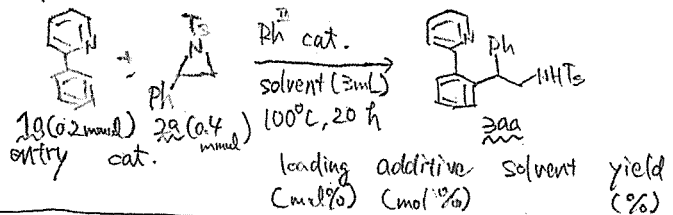 N
Ts
N
Ph
+
Ph
cat.
solvent (3mL)
100°C, 20 h
N
Ph
NHTs
1a (0.2 mmol) 2a (0.4 mmol)
3aa
entry cat. loading additive solvent yield
(mol%) (mol%) (%)